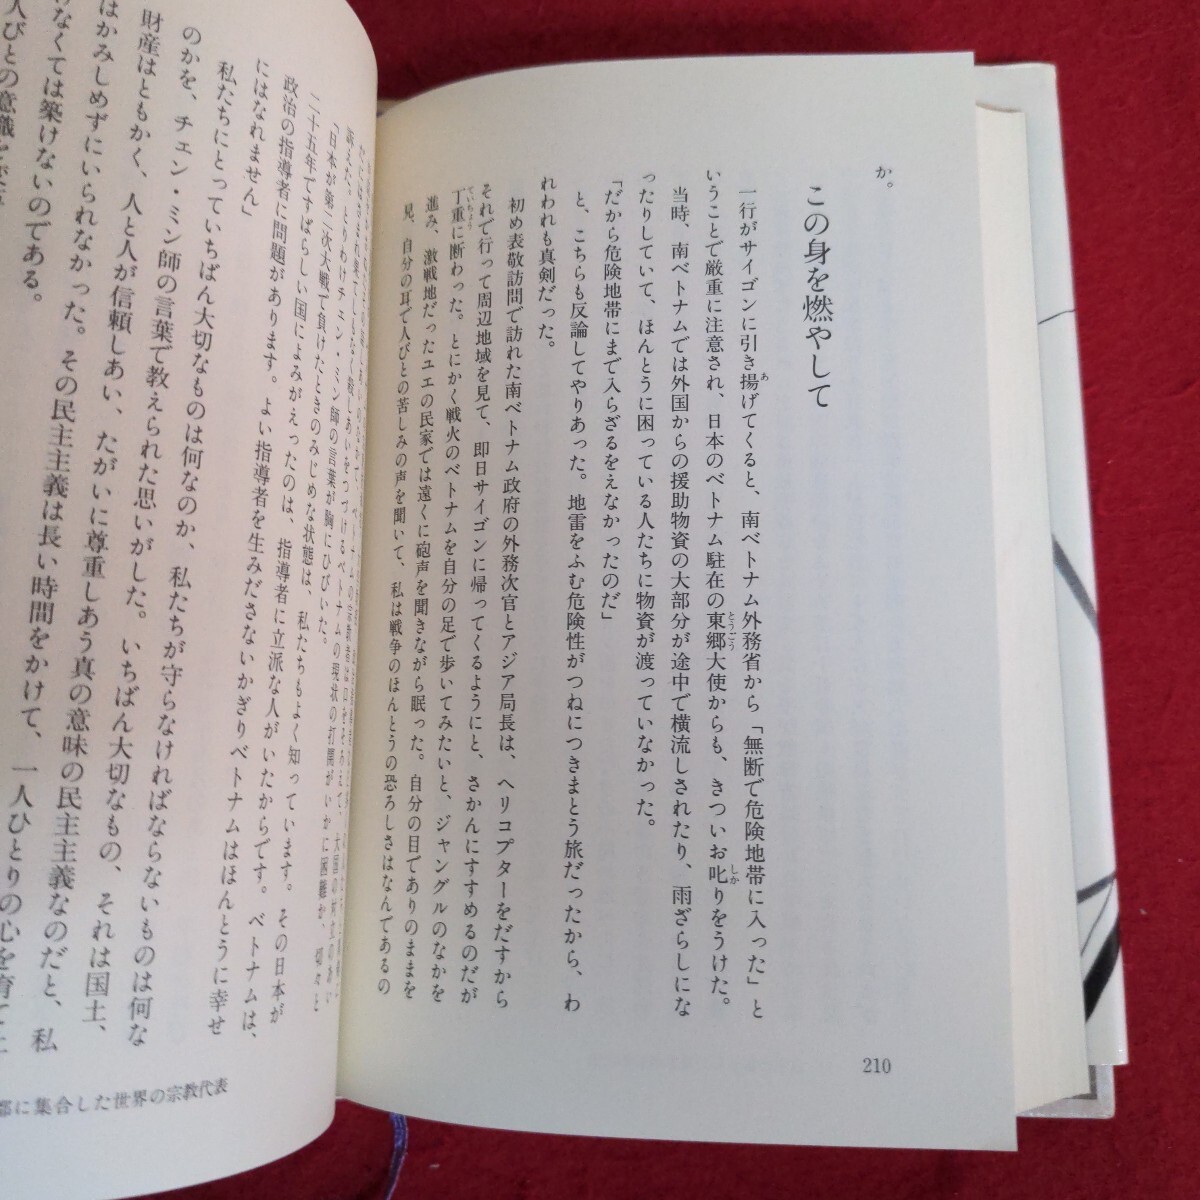 か。
この身を燃やして
一行がサイゴンに引き揚げてくると、南ベトナム外務省から「無断で危険地帯に入った」と
いうことで厳重に注意され、日本のベトナム駐在の東郷大使からも、きついお叱りをうけた。
当時、南ベトナムでは外国からの援助物資の大部分が途中で横流しされたり、雨ざらしにな
ったりしていて、ほんとうに困っている人たちに物資が渡っていなかった。
「だから危険地帯にまで入らざるをえなかったのだ」
と、こちらも反論してやりあった。地雷をふむ危険性がつねにつきまとう旅だったから、わ
れわれも真剣だった。
初め表敬訪問で訪れた南ベトナム政府の外務次官とアジア局長は、ヘリコプターをだすから
それで行って周辺地域を見て、即日サイゴンに帰ってくるようにと、さかんにすすめるのだが
丁重に断わった。とにかく戦火のベトナムを自分の足で歩いてみたいと、ジャングルのなかを
進み、激戦地だったユエの民家では遠くに砲声を聞きながら眠った。自分の目でありのままを
見、自分の耳で人びとの苦しみの声を聞いて、私は戦争のほんとうの恐ろしさはなんであるの
210
訴えた。とりわけチェン・ミン師の言葉が胸にひびいた。
「日本が第二次大戦で負けたときのみじめな状態は、私たちもよく知っています。その日本が
二十五年ですばらしい国によみがえったのは、指導者に立派な人がいたからです。ベトナムは、
政治の指導者に問題があります。よい指導者を生みださないかぎりベトナムはほんとうに幸せ
にはなれません」
私たちにとっていちばん大切なものは何なのか、私たちが守らなければならないものは何な
のかを、チェン・ミン師の言葉で教えられた思いがした。いちばん大切なもの、それは国土、
財産はともかく、人と人が信頼しあい、たがいに尊重しあう真の意味の民主主義なのだと、私
はかみしめずにいられなかった。その民主主義は長い時間をかけて、一人ひとりの心を育て上
げなくては築けないのである。
人びとの意識を
都に集合した世界の宗教代表